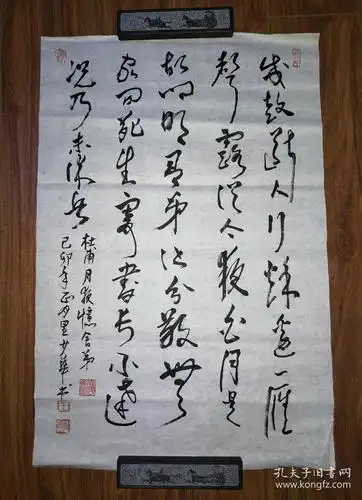 戍鼓斷人行秋邊一雁
聲露從今夜白月是
故鄉明有弟皆分散無
家问死生寄書長不達
况乃未休兵
杜甫月夜憶舍弟
己卯年正月里少華书
孔夫子旧书网
www.kongfz.com